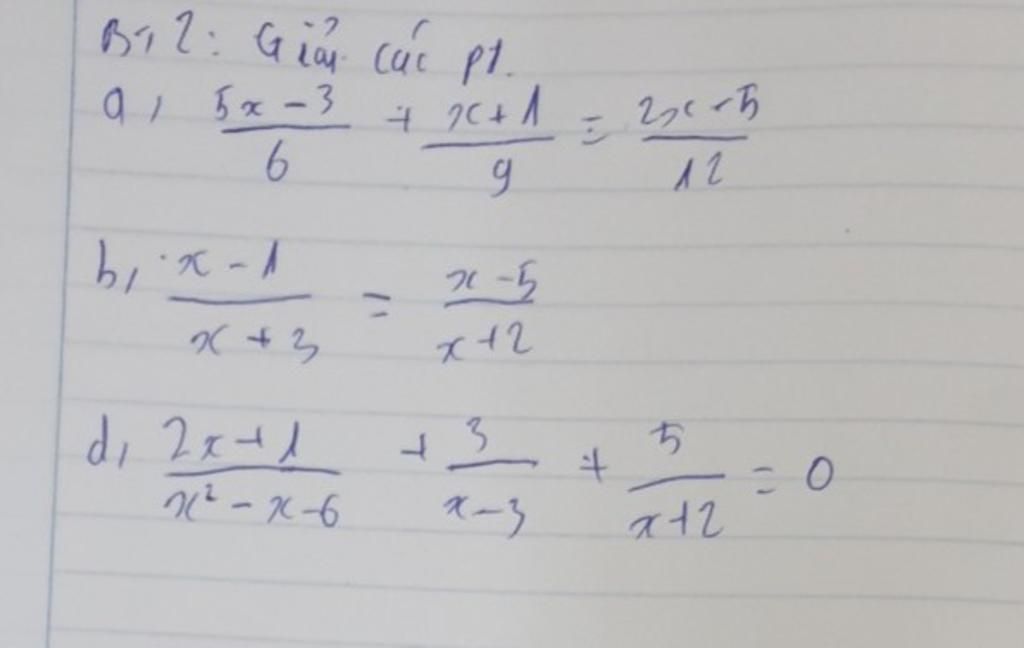 BT2: Giải các pt.
a, (5x - 3)/6 + (x + 1)/9 = (2x - 5)/12
b, (x - 1)/(x + 3) = (x - 5)/(x + 2)
d, (2x + 1)/(x² - x - 6) + 3/(x - 3) + 5/(x + 2) = 0